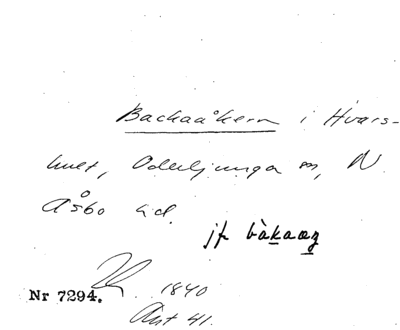 Backaåkern i Hvars-
hult, Oderljunga sn, N.
Åsbo hd.
jfr bàkaaz
Nr 7294. 1840
Ant 41.